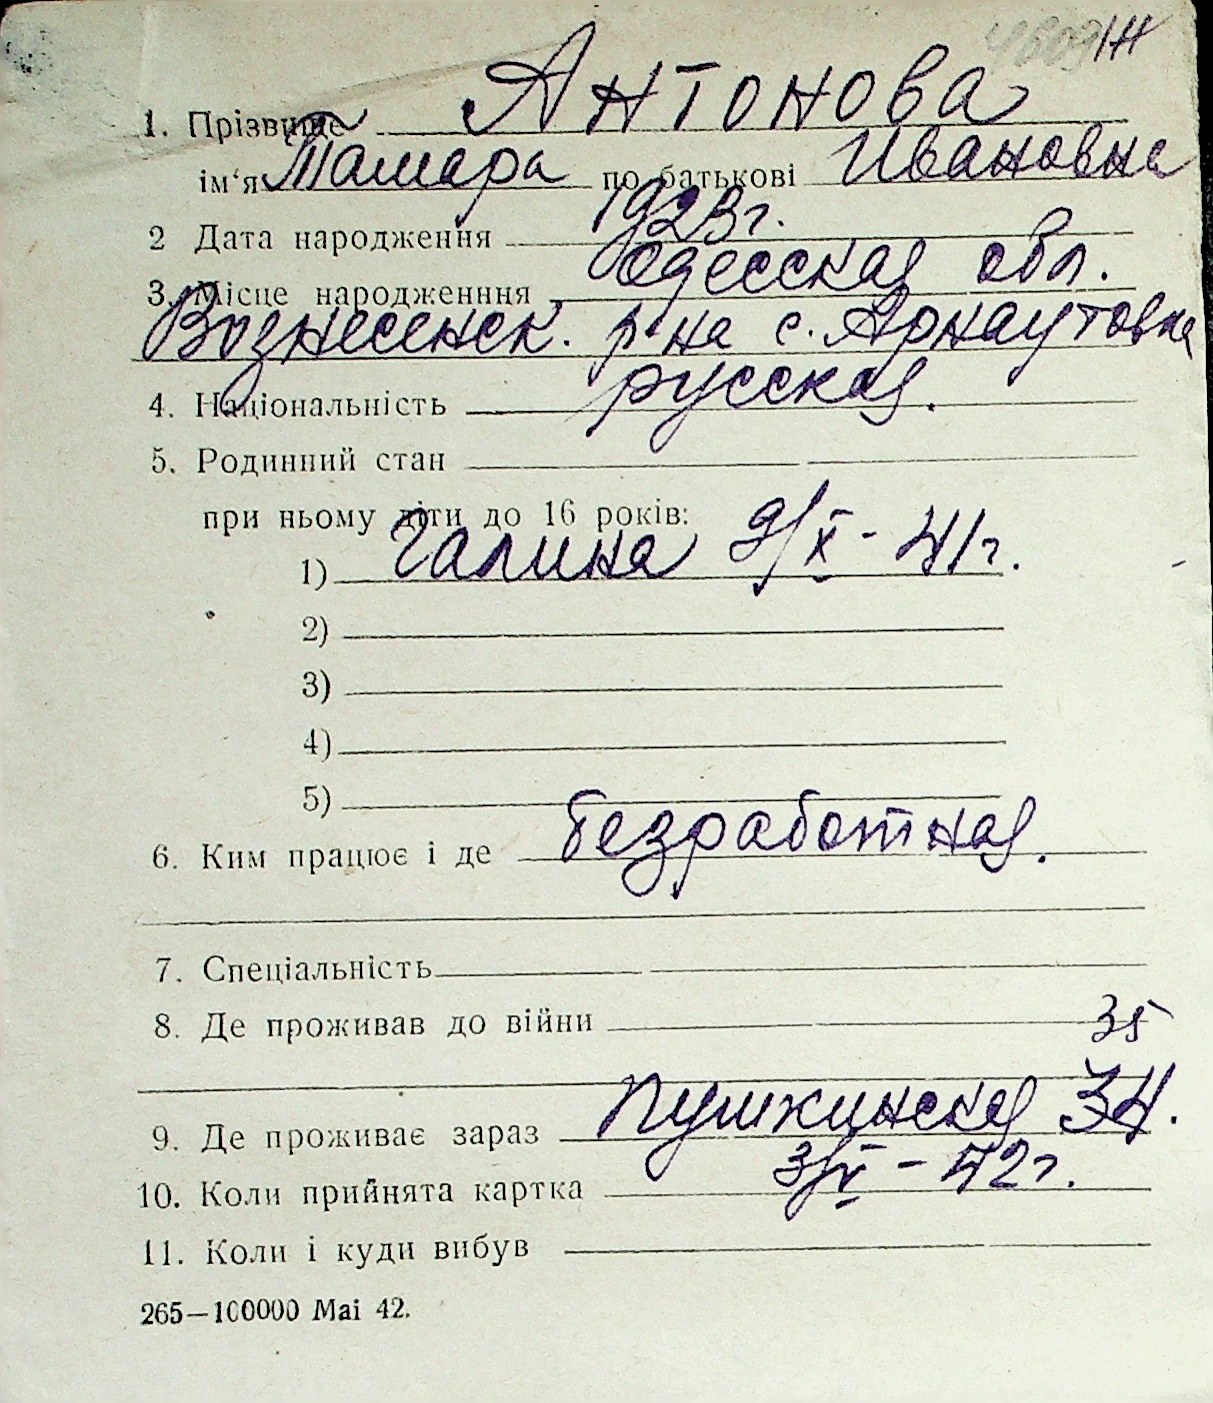 1. Прізвище Антонова
ім'я Тамара по батькові Ивановна
2 Дата народження 1923г.
3. Місце народженння Одесская обл.
Вознесенск. р-на с. Арнаутовка
4. Національність русская.
5. Родинний стан
при ньому діти до 16 років:
1) Галина 9/X - 41г.
2)
3)
4)
5)
6. Ким працює і де безработная.
7. Спеціальність
8. Де проживав до війни
35
9. Де проживає зараз Пушкинская 34.
10. Коли прийнята картка 3/V - 42г.
11. Коли і куди вибув
265—100000 Mai 42.